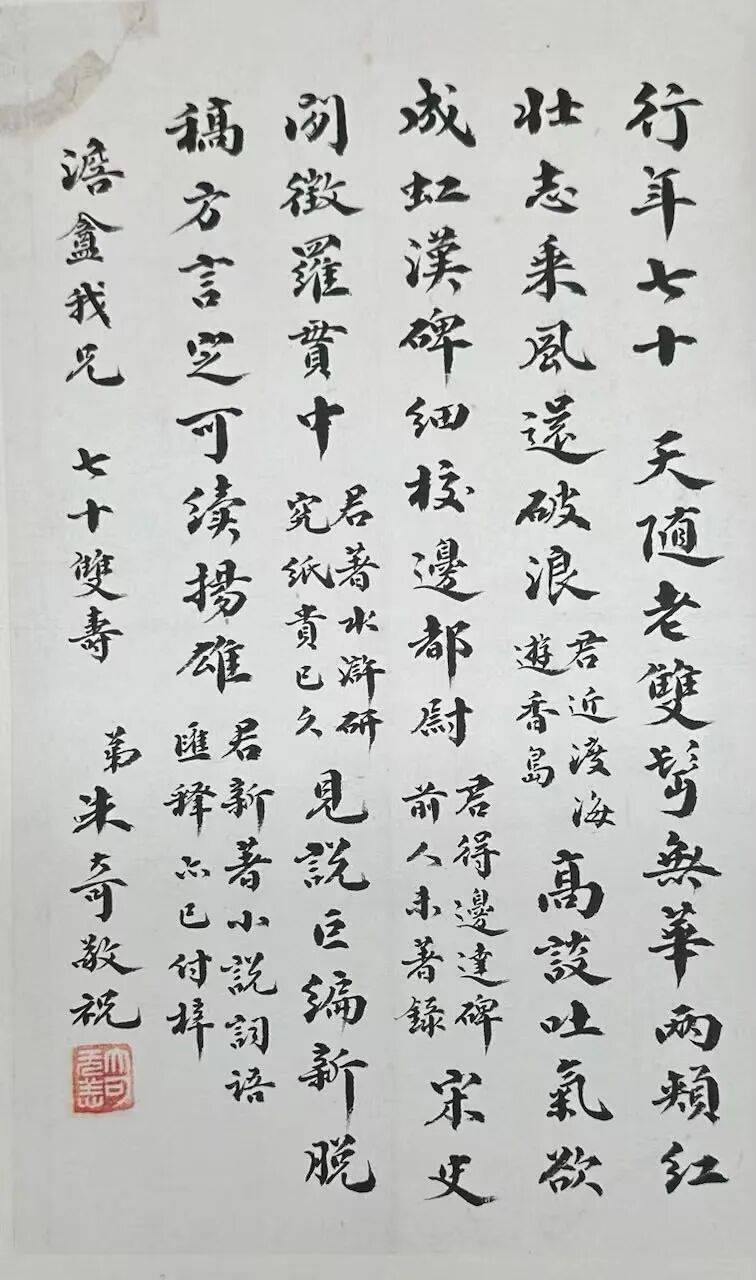 行年七十 天随老雙鬢無華兩頰紅
壯志乘風還破浪君近渡海遊香島高談吐氣欲
成虹漢碑細校邊都尉君得邊達碑前人未著錄宋史
閒徵羅貫中君著水滸研究紙貴已久見說巨編新脫
稿方言定可續揚雄君新著小說詞語匯釋亦已付梓
澹盦我兄 七十雙壽 弟朱奇敬祝
大可无恙